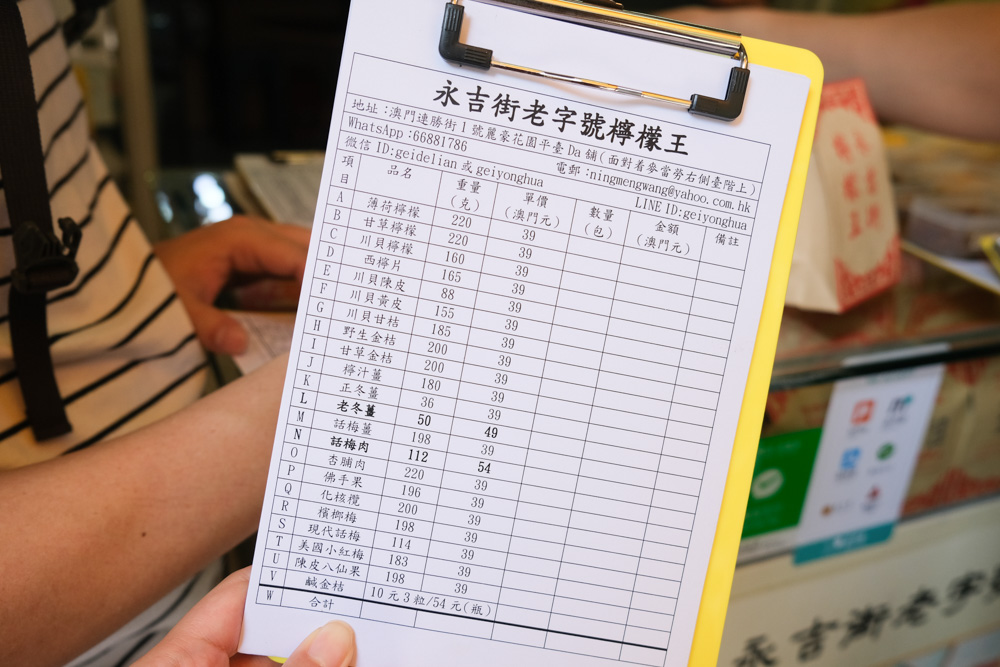 永吉街老字號檸檬王
地址:澳門連勝街1號麗豪花園平臺Da舖(面對着麥當勞右側臺階上)
WhatsApp:66881786 電郵:ningmengwang@yahoo.com.hk
微信ID:geidelian或geiyonghua LINE ID:geiyonghua
項目 品名 重量(克) 單價(澳門元) 數量(包) 金額(澳門元) 備註
A 薄荷檸檬 220 39
B 甘草檸檬 220 39
C 川貝檸檬 160 39
D 西檸片 165 39
E 川貝陳皮 88 39
F 川貝黃皮 155 39
G 川貝甘桔 185 39
H 野生金桔 200 39
I 甘草金桔 200 39
J 檸汁薑 180 39
K 正冬薑 36 39
L 老冬薑 50 49
M 話梅薑 198 39
N 話梅肉 112 54
O 杏脯肉 220 39
P 佛手果 196 39
Q 化核欖 200 39
R 檳榔梅 198 39
S 現代話梅 114 39
T 美國小紅梅 183 39
U 陳皮八仙果 198 39
V 鹹金桔 10元3粒/54元(瓶)
W 合計
永吉街老字